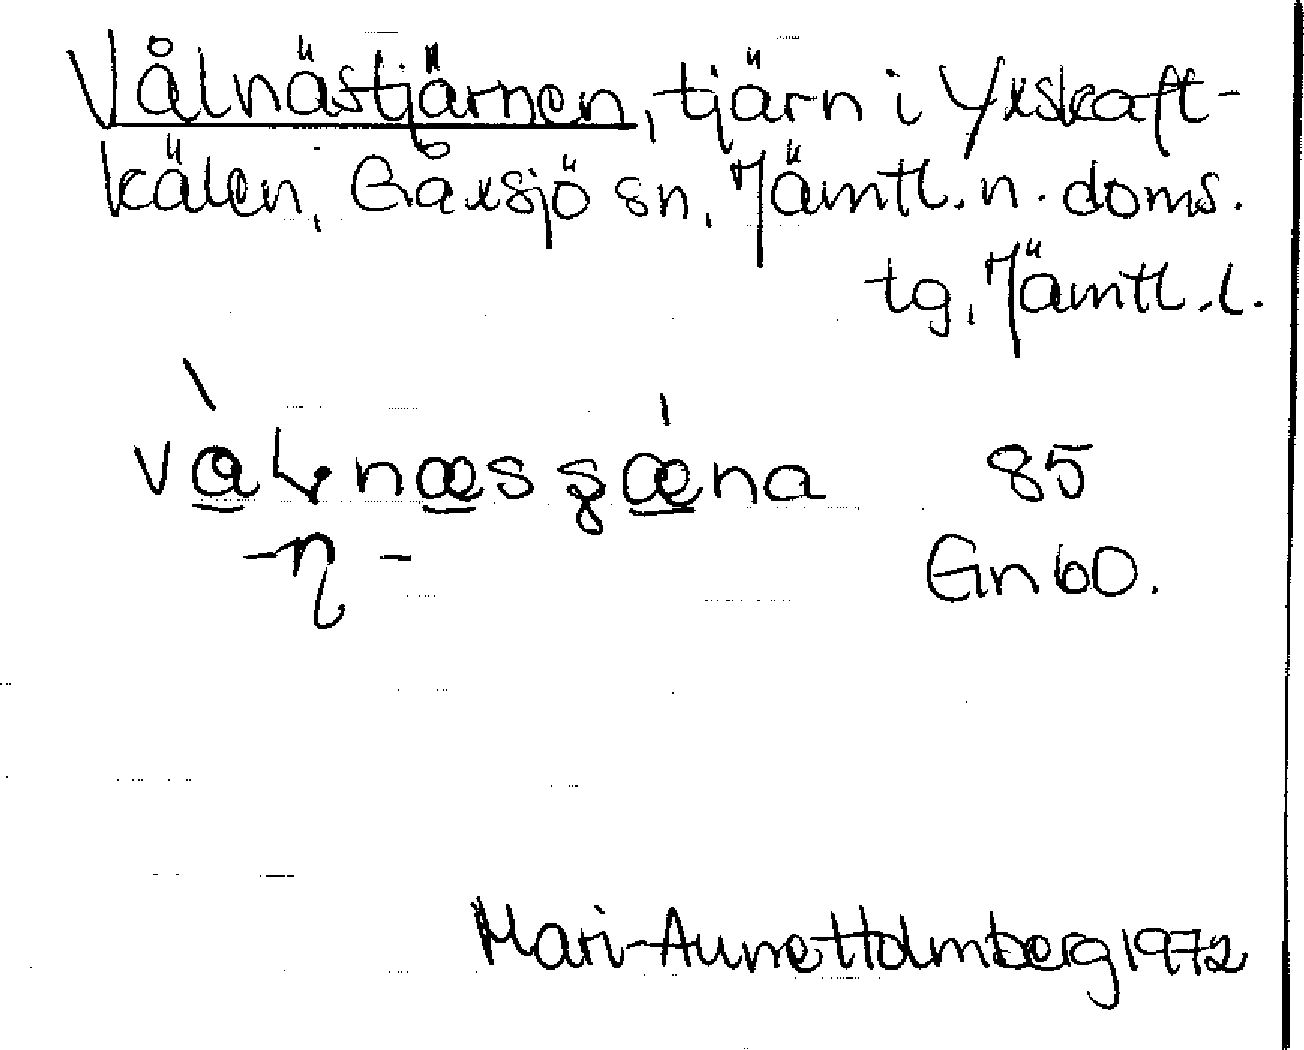 Vålnästjärnen, tjärn i Yxskaft-
kälen, Gåxsjö sn, Jämtl. n. doms.
tg, Jämtl. l.
85
Gn 60.
Mari-Anne Holmberg 1972